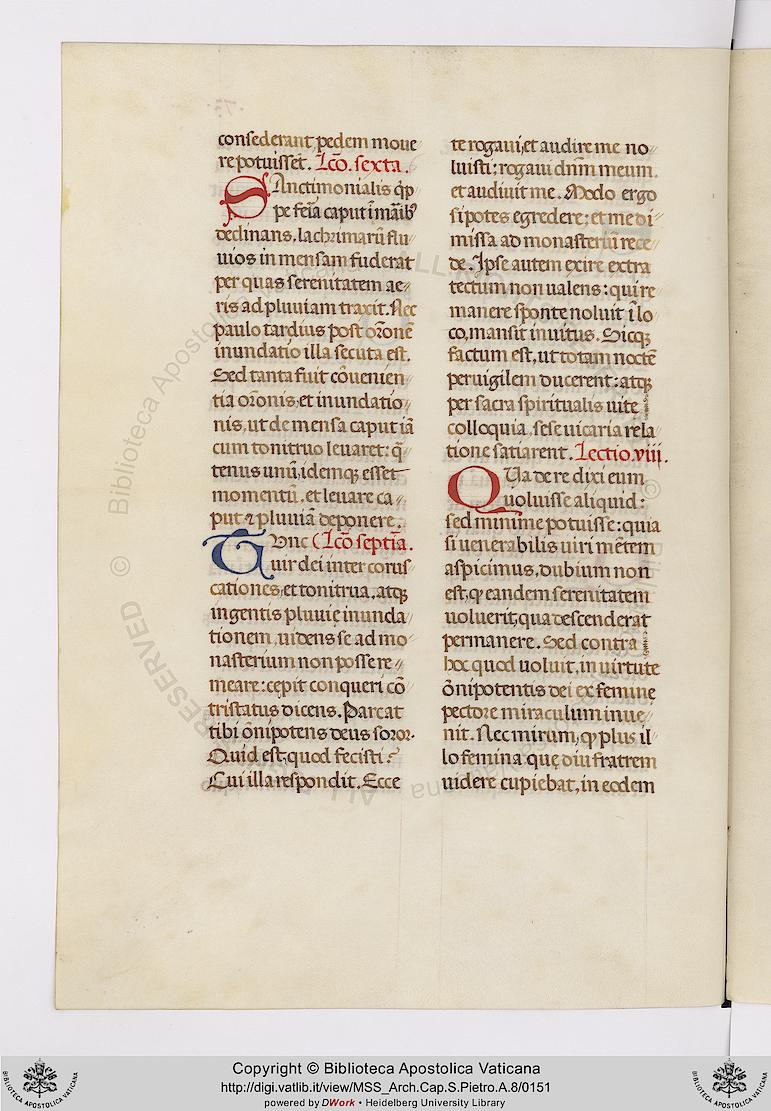 consederant, pedem moue
re potuisset. Lcō. sexta.
SAnctimonialis q̄p
pe feīa caput ī maīb9
declinans, lachrimarū flu
uios in mensam fuderat
per quas serenitatem ae
ris ad pluuiam traxit. Nec
paulo tardius post orōnē
inundatio illa secuta est.
Sed tanta fuit cōuenien
tia orōnis, et inundatio
nis, ut de mensa caput iā
cum tonitruo leuaret: q̄
tenus unū, idemqȝ esset
momentū, et leuare ca
put ⁊ pluuiā deponere.
TVnc (Lcō septīa.
uir dei inter corus
cationes, et tonitrua, atqȝ
ingentis pluuię inunda
tionem, uidens se ad mo
nasterium non posse re
meare: cępit conqueri cō
tristatus dicens. Parcat
tibi ōnipotens deus soror.
Quid est, quod fecisti?
Cui illa respondit. Ecce
te rogaui, et audire me no
luisti: rogaui dnm̄ meum,
et audiuit me. Modo ergo
si potes egredere: et me di
missa ad monasteriū rece
de. Ipse autem exire extra
tectum non ualens: qui re
manere sponte noluit ī lo
co, mansit inuitus. Sicqȝ
factum est, ut totam noctē
peruigilem ducerent: atqȝ
per sacra spiritualis uite
colloquia, sese uicaria rela
tione satiarent. Lectio. viii.
QUa de re dixi eum
uoluisse aliquid:
sed minime potuisse: quia
si uenerabilis uiri mētem
aspicimus, dubium non
est, ꝙ eandem serenitatem
uoluerit, qua descenderat
permanere. Sed contra
hoc quod uoluit, in uirtute
ōnipotentis dei ex femine
pectore miraculum inue
nit. Nec mirum, ꝙ plus il
lo femina quę diu fratrem
uidere cupiebat, in eodem
Copyright © Biblioteca Apostolica Vaticana
http://digi.vatlib.it/view/MSS_Arch.Cap.S.Pietro.A.8/0151
powered by DWork • Heidelberg University Library